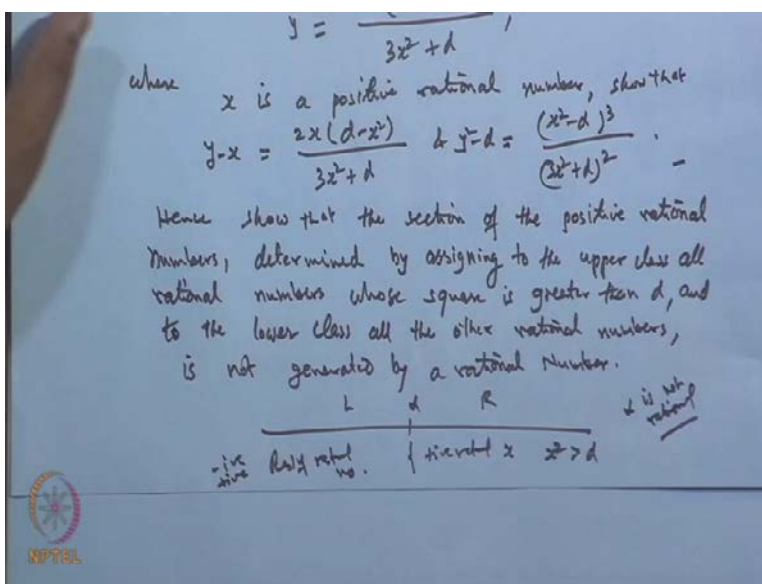 y = / 3x² + d ,
where
x is a positive rational number, show that
y-x = 2x(d-x²) / 3x²+d & y²-d = (x²-d)³ / (3x²+d)² .
Hence show that the section of the positive rational
numbers, determined by assigning to the upper class all
rational numbers whose square is greater than d, and
to the lower class all the other rational numbers,
is not generated by a rational number.
L α R
α is not rational
-ive +ive no. x x² > d
NPTEL